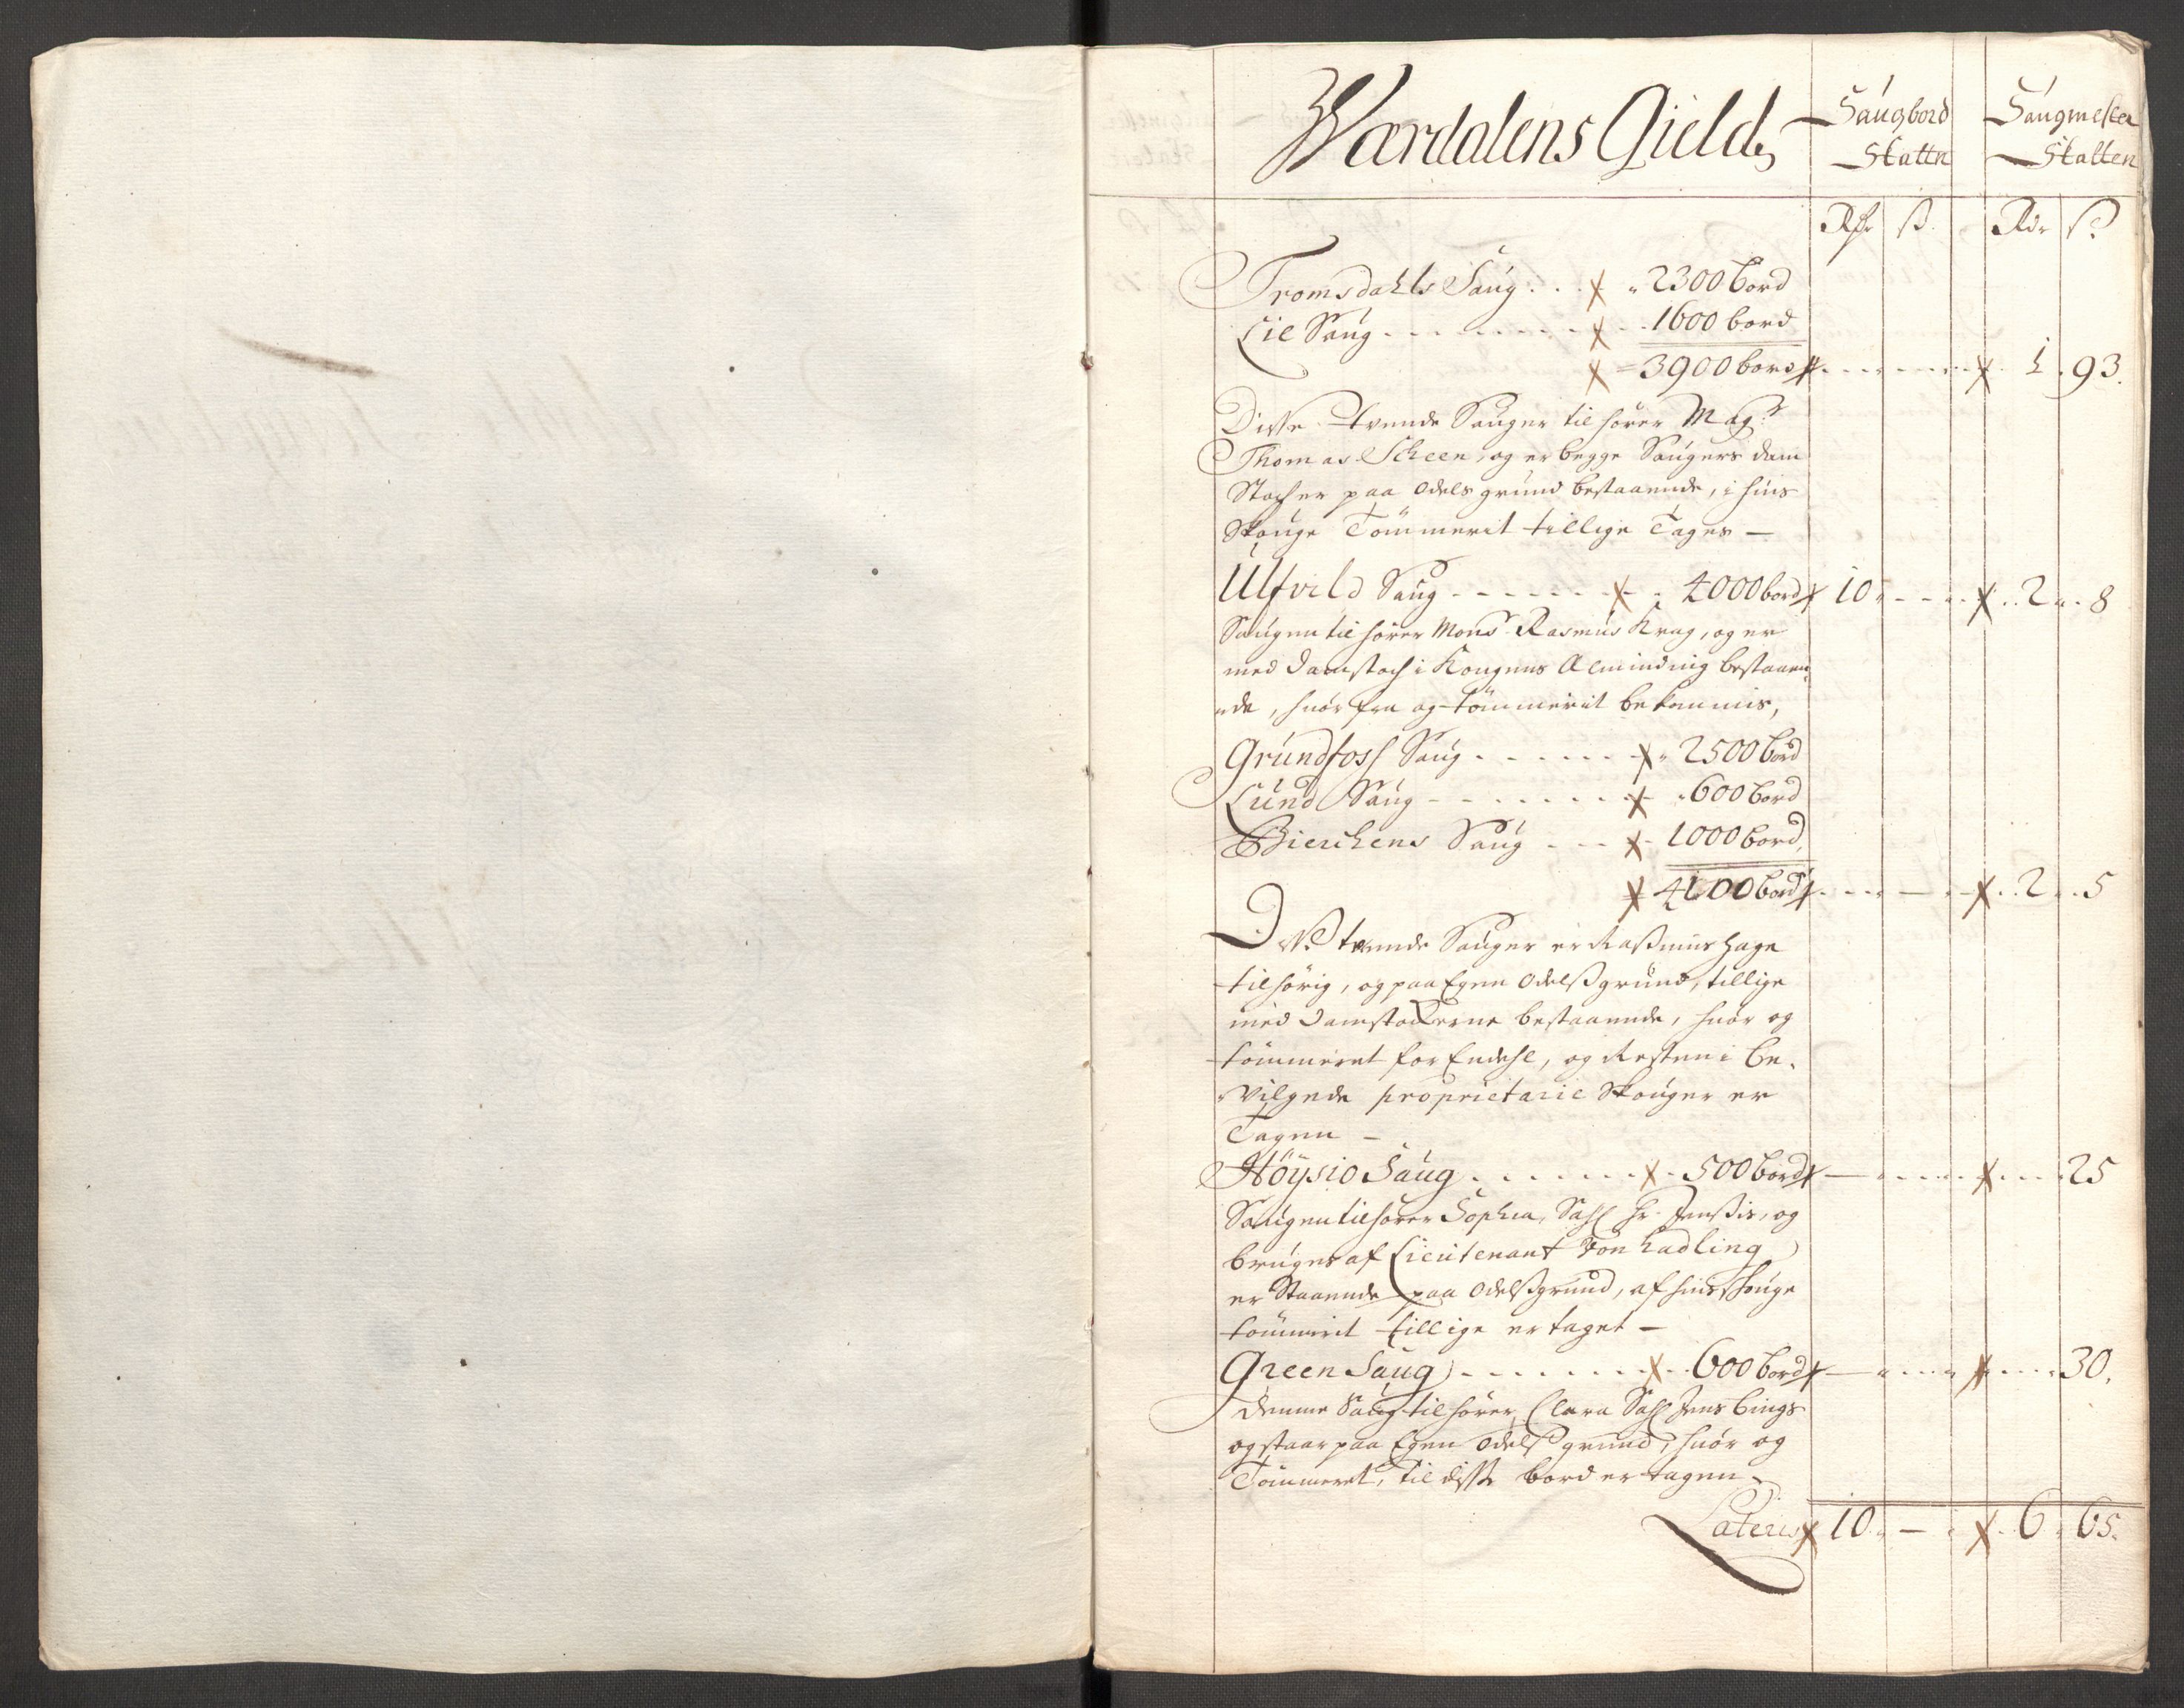 Wærdalens Gield,
Saugbord Skattn
Saugmester Skatten
Rdr ß. Rdr ß
Tromsdahls Saug . . . 2300 bord
Lie Saug - - - - - - 1600 bord
3900 bord - - - - 1 . 93.
Disse tvende Sauger til hører Magr
Thomas Scheen, og er begge Saugers dam
Stocher paa Odels grund bestaaende, i huis
Skouge Tømmerit tillige Tages —
Ulfvild Saug - - - - - - 4000 bord 10 - - - . . 2 . . 8
Saugen til hører Monsr Rasmus Krag, og er
med damstoch i Kongens Alminding bestaaen¬
nde, huor fra og tømmerit bekommis,
Grundfoss Saug - - - - - - 2500 bord
Lund Saug - - - - - - 600 bord
Bierchens Saug - - - 1000 bord,
4100 bord - - - - . . 2 . . 5
Disse trende Sauger er Rasmus Hage
tilhørig, og paa Egen Odelßgrund, tillige
med Damstockerne bestaaende, huor og
tømmeret for Endehl, og Resten i be¬
vilgede proprietarie Skouger er
Tagen —
Höysio Saug . . . . . . 500 bord — - - - - - - 25
Saugen tilhører Sophia, Sahl Hr. Jenßis, og
bruges af Lieutenant Von Hadling
er Staaende paa Odelßgrund, af huis Skouge
tømmerit tillige er taget —
Green Saug - - - - - - 600 bord — - - - - - - 30.
denne Saug tilhører Clara Sahl Jens Bings
og staar paa Egen Odelß grund, huor og
Tømmeret, til disse bord er tagen -
Lateris 10 - — - . 6 . 65.